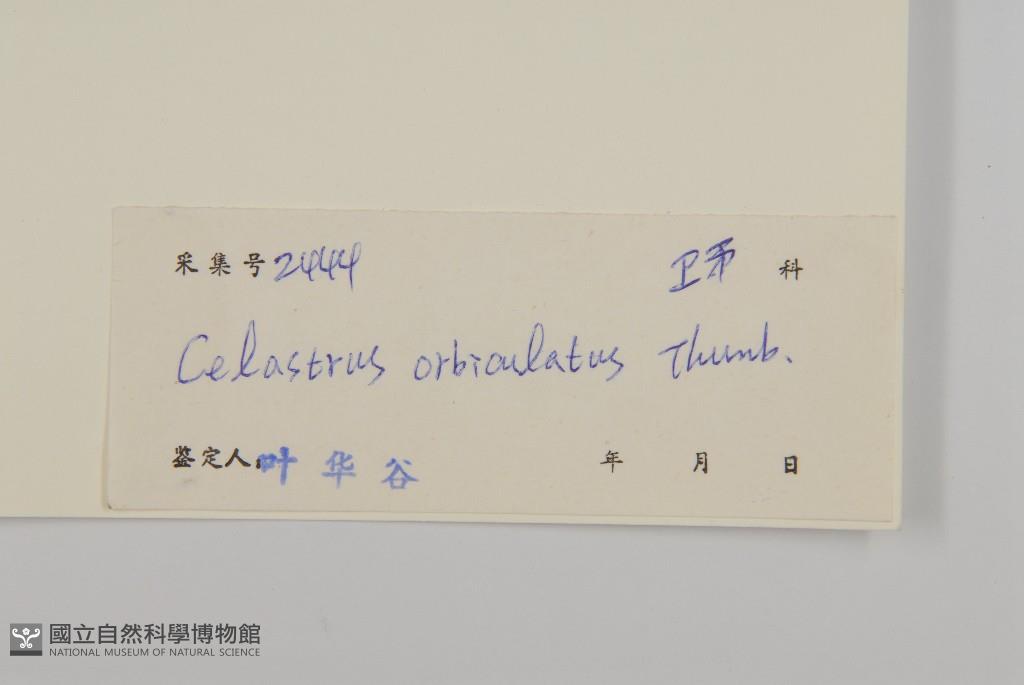 采集号 2444 卫矛 科
Celastrus orbiculatus Thunb.
鉴定人: 叶华谷 年 月 日
國立自然科學博物館
NATIONAL MUSEUM OF NATURAL SCIENCE